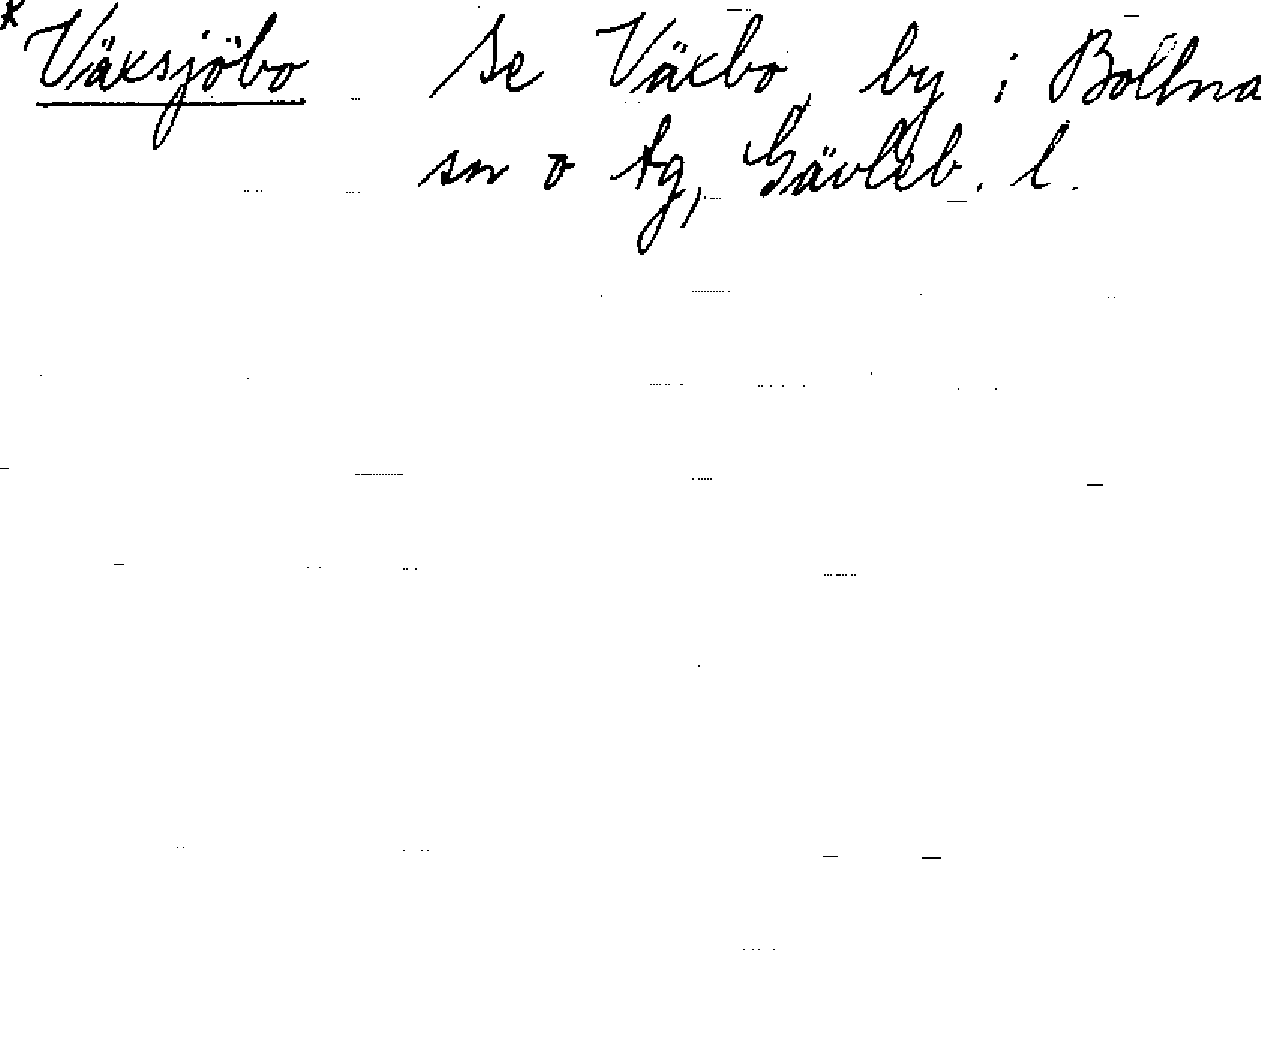 *Växsjöbo se Växbo, by i Bollna
sn o tg, Gävleb. l.